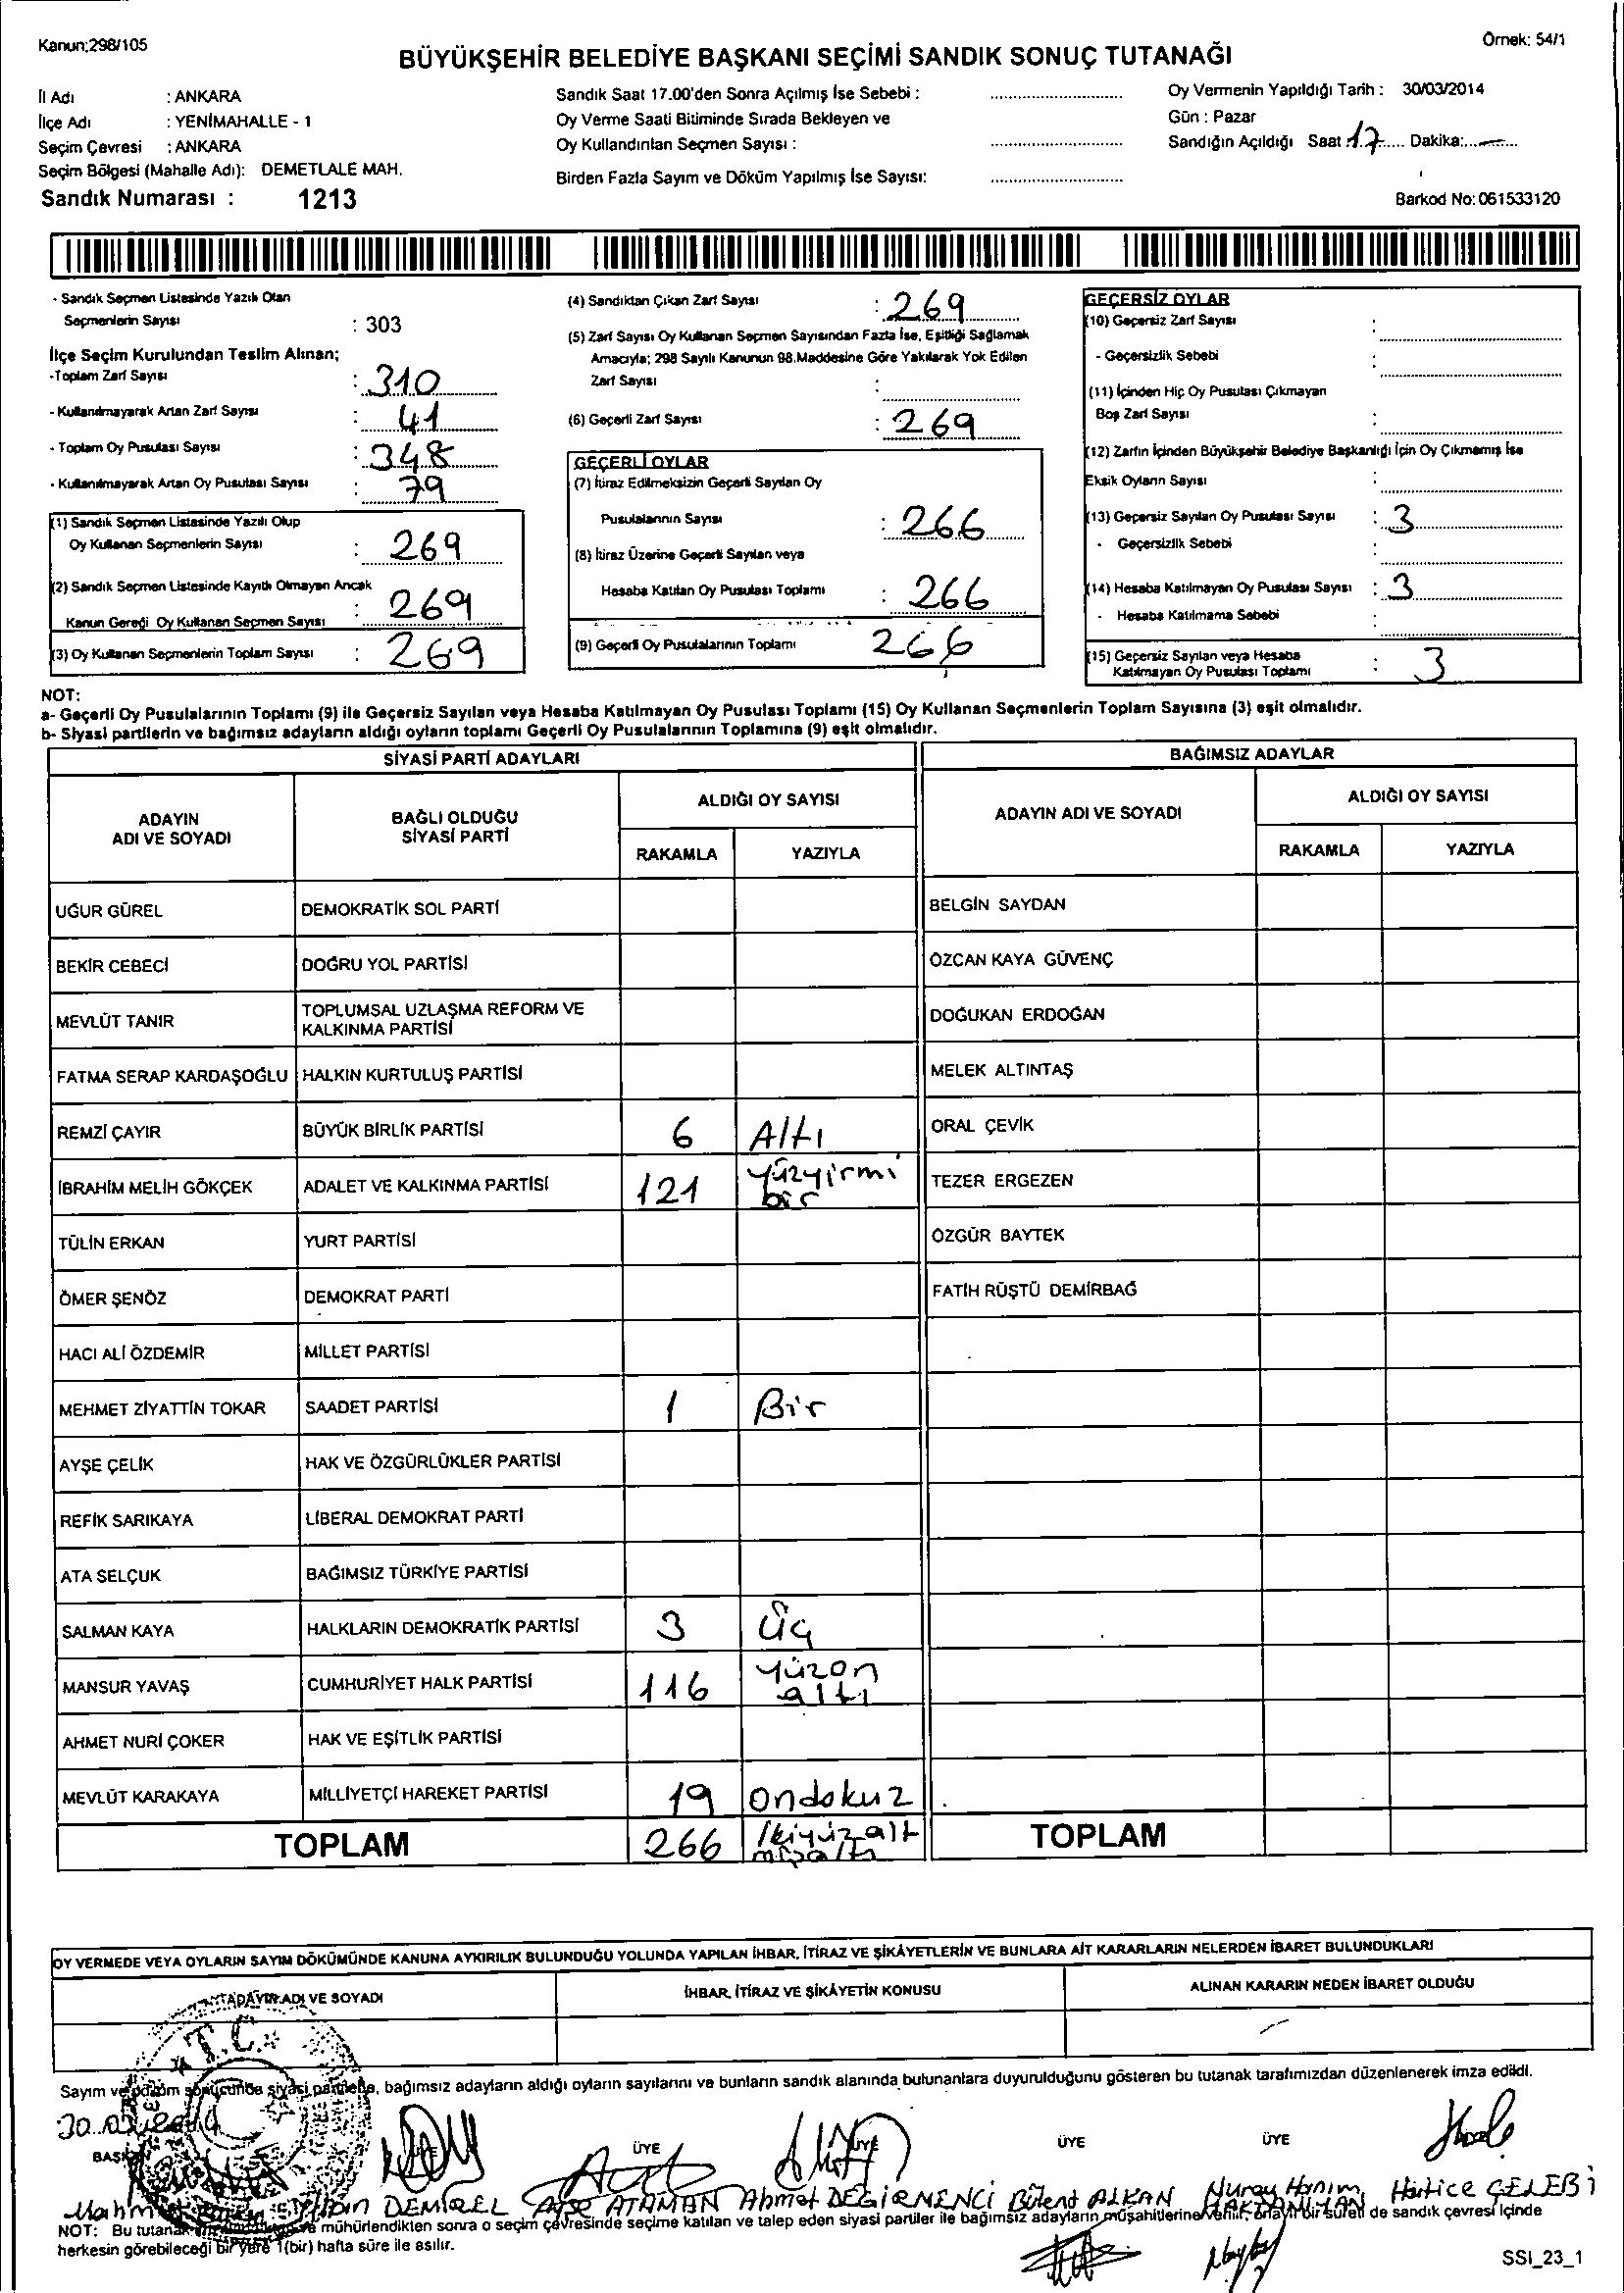 Kanun:298/105
Örnek: 54/1
BÜYÜKŞEHİR BELEDİYE BAŞKANI SEÇİMİ SANDIK SONUÇ TUTANAĞI
İl Adı : ANKARA
İlçe Adı : YENİMAHALLE - 1
Seçim Çevresi : ANKARA
Seçim Bölgesi (Mahalle Adı): DEMETLALE MAH.
Sandık Numarası : 1213
Sandık Saat 17.00'den Sonra Açılmış İse Sebebi :
Oy Verme Saati Bitiminde Sırada Bekleyen ve
Oy Kullandırılan Seçmen Sayısı :
Birden Fazla Sayım ve Döküm Yapılmış İse Sayısı:
Oy Vermenin Yapıldığı Tarih : 30/03/2014
Gün : Pazar
Sandığın Açıldığı Saat 17 Dakika:
Barkod No: 061533120
- Sandık Seçmen Listesinde Yazılı Olan
Seçmenlerin Sayısı : 303
İlçe Seçim Kurulundan Teslim Alınan;
-Toplam Zarf Sayısı : 310
- Kullanılmayarak Artan Zarf Sayısı : 41
- Toplam Oy Pusulası Sayısı : 348
- Kullanılmayarak Artan Oy Pusulası Sayısı : 79
(1) Sandık Seçmen Listesinde Yazılı Olup
Oy Kullanan Seçmenlerin Sayısı : 269
(2) Sandık Seçmen Listesinde Kayıtlı Olmayan Ancak
Kanun Gereği Oy Kullanan Seçmen Sayısı : 269
(3) Oy Kullanan Seçmenlerin Toplam Sayısı : 269
(4) Sandıktan Çıkan Zarf Sayısı : 269
(5) Zarf Sayısı Oy Kullanan Seçmen Sayısından Fazla İse, Eşitliği Sağlamak
Amacıyla; 298 Sayılı Kanunun 98.Maddesine Göre Yakılarak Yok Edilen
Zarf Sayısı :
(6) Geçerli Zarf Sayısı : 269
GEÇERLİ OYLAR
(7) İtiraz Edilmeksizin Geçerli Sayılan Oy
Pusulalarının Sayısı : 266
(8) İtiraz Üzerine Geçerli Sayılan veya
Hesaba Katılan Oy Pusulası Toplamı : 266
(9) Geçerli Oy Pusulalarının Toplamı 266
GEÇERSİZ OYLAR
(10) Geçersiz Zarf Sayısı :
- Geçersizlik Sebebi :
(11) İçinden Hiç Oy Pusulası Çıkmayan
Boş Zarf Sayısı :
(12) Zarfın İçinden Büyükşehir Belediye Başkanlığı İçin Oy Çıkmamış İse
Eksik Oyların Sayısı :
(13) Geçersiz Sayılan Oy Pusulası Sayısı : 3
- Geçersizlik Sebebi :
(14) Hesaba Katılmayan Oy Pusulası Sayısı : 3
- Hesaba Katılmama Sebebi :
(15) Geçersiz Sayılan veya Hesaba
Katılmayan Oy Pusulası Toplamı : 3
NOT:
a- Geçerli Oy Pusulalarının Toplamı (9) ile Geçersiz Sayılan veya Hesaba Katılmayan Oy Pusulası Toplamı (15) Oy Kullanan Seçmenlerin Toplam Sayısına (3) eşit olmalıdır.
b- Siyasi partilerin ve bağımsız adayların aldığı oyların toplamı Geçerli Oy Pusulalarının Toplamına (9) eşit olmalıdır.
SİYASİ PARTİ ADAYLARI
BAĞIMSIZ ADAYLAR
ADAYIN
ADI VE SOYADI
BAĞLI OLDUĞU
SİYASİ PARTİ
ALDIĞI OY SAYISI
RAKAMLA YAZIYLA
ADAYIN ADI VE SOYADI
ALDIĞI OY SAYISI
RAKAMLA YAZIYLA
UĞUR GÜREL DEMOKRATİK SOL PARTİ BELGİN SAYDAN
BEKİR CEBECİ DOĞRU YOL PARTİSİ ÖZCAN KAYA GÜVENÇ
MEVLÜT TANIR TOPLUMSAL UZLAŞMA REFORM VE
KALKINMA PARTİSİ DOĞUKAN ERDOĞAN
FATMA SERAP KARDAŞOĞLU HALKIN KURTULUŞ PARTİSİ MELEK ALTINTAŞ
REMZİ ÇAYIR BÜYÜK BİRLİK PARTİSİ 6 Altı ORAL ÇEVİK
İBRAHİM MELİH GÖKÇEK ADALET VE KALKINMA PARTİSİ 121 yüzyirmi
bir TEZER ERGEZEN
TÜLİN ERKAN YURT PARTİSİ ÖZGÜR BAYTEK
ÖMER ŞENÖZ DEMOKRAT PARTİ FATİH RÜŞTÜ DEMİRBAĞ
HACI ALİ ÖZDEMİR MİLLET PARTİSİ
MEHMET ZİYATTİN TOKAR SAADET PARTİSİ 1 Bir
AYŞE ÇELİK HAK VE ÖZGÜRLÜKLER PARTİSİ
REFİK SARIKAYA LİBERAL DEMOKRAT PARTİ
ATA SELÇUK BAĞIMSIZ TÜRKİYE PARTİSİ
SALMAN KAYA HALKLARIN DEMOKRATİK PARTİSİ 3 üç
MANSUR YAVAŞ CUMHURİYET HALK PARTİSİ 116 yüzon
altı
AHMET NURİ ÇOKER HAK VE EŞİTLİK PARTİSİ
MEVLÜT KARAKAYA MİLLİYETÇİ HAREKET PARTİSİ 19 ondokuz
TOPLAM 266 ikiyüzalt
mışaltı TOPLAM
OY VERMEDE VEYA OYLARIN SAYIM DÖKÜMÜNDE KANUNA AYKIRILIK BULUNDUĞU YOLUNDA YAPILAN İHBAR, İTİRAZ VE ŞİKÂYETLERİN VE BUNLARA AİT KARARLARIN NELERDEN İBARET BULUNDUKLARI
ADI VE SOYADI
İHBAR, İTİRAZ VE ŞİKÂYETİN KONUSU
ALINAN KARARIN NEDEN İBARET OLDUĞU
T.C.
Sayım ve döküm sonucunda siyasi partilerle, bağımsız adayların aldığı oyların sayılarını ve bunların sandık alanında bulunanlara duyurulduğunu gösteren bu tutanak tarafımızdan düzenlenerek imza edildi.
30.03.2014
ÜYE ÜYE ÜYE ÜYE
DEMİREL Ayşe ATAMAN Ahmet DEĞİRMENCİ Bülent ALKAN Nuray Hanım Hatice ÇELEBİ
NOT: Bu tutanak mühürlendikten sonra o seçim çevresinde seçime katılan ve talep eden siyasi partiler ile bağımsız adayların müşahitlerine verilir, onaylı bir sureti de sandık çevresi içinde
herkesin görebileceği bir yere 1(bir) hafta süre ile asılır.
SSI_23_1